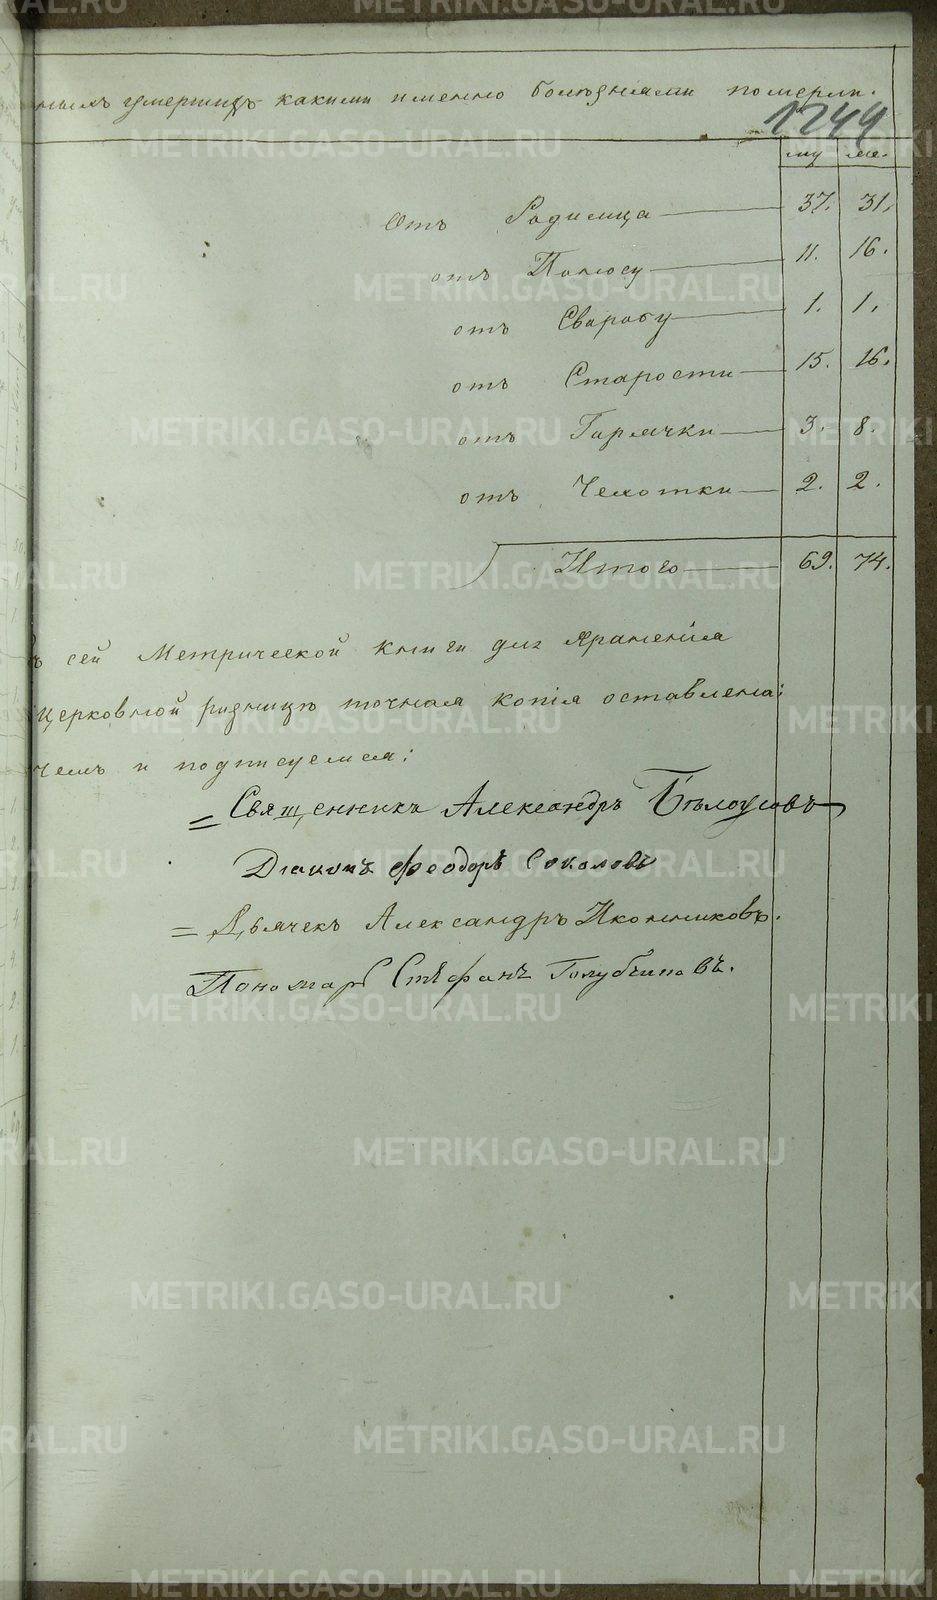 умершихъ какими именно болѣзнями померли.
1244
му же.
Отъ Родимца 37. 31.
отъ Поносу 11. 16.
отъ Сваробу 1. 1.
отъ Старости 15. 16.
отъ Гарячки 3. 8.
отъ Чехотки 2. 2.
Итого 69. 74.
сей Метрической книги для храненія
Церковной ризницѣ точная копія оставлена;
чемъ и подписуемся:
= Священникъ Александръ Бѣлоусовъ
Діаконъ Феодоръ Соколовъ
= Дьячекъ Александръ Иконниковъ.
Пономарь Стефанъ Голубчиковъ.
METRIKI.GASO-URAL.RU